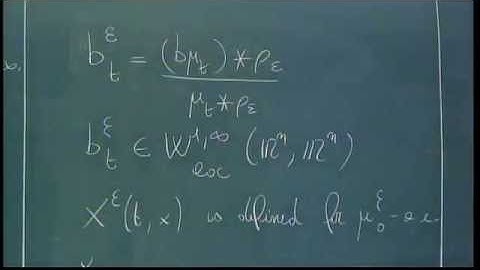 b_t^ε = (bμ_t) * ρ_ε / μ_t * ρ_ε
b_t^ε ∈ W_loc^{1,∞} (ℝ^n, ℝ^n)
X^ε(t, x) is defined for μ_0^ε-a.e.